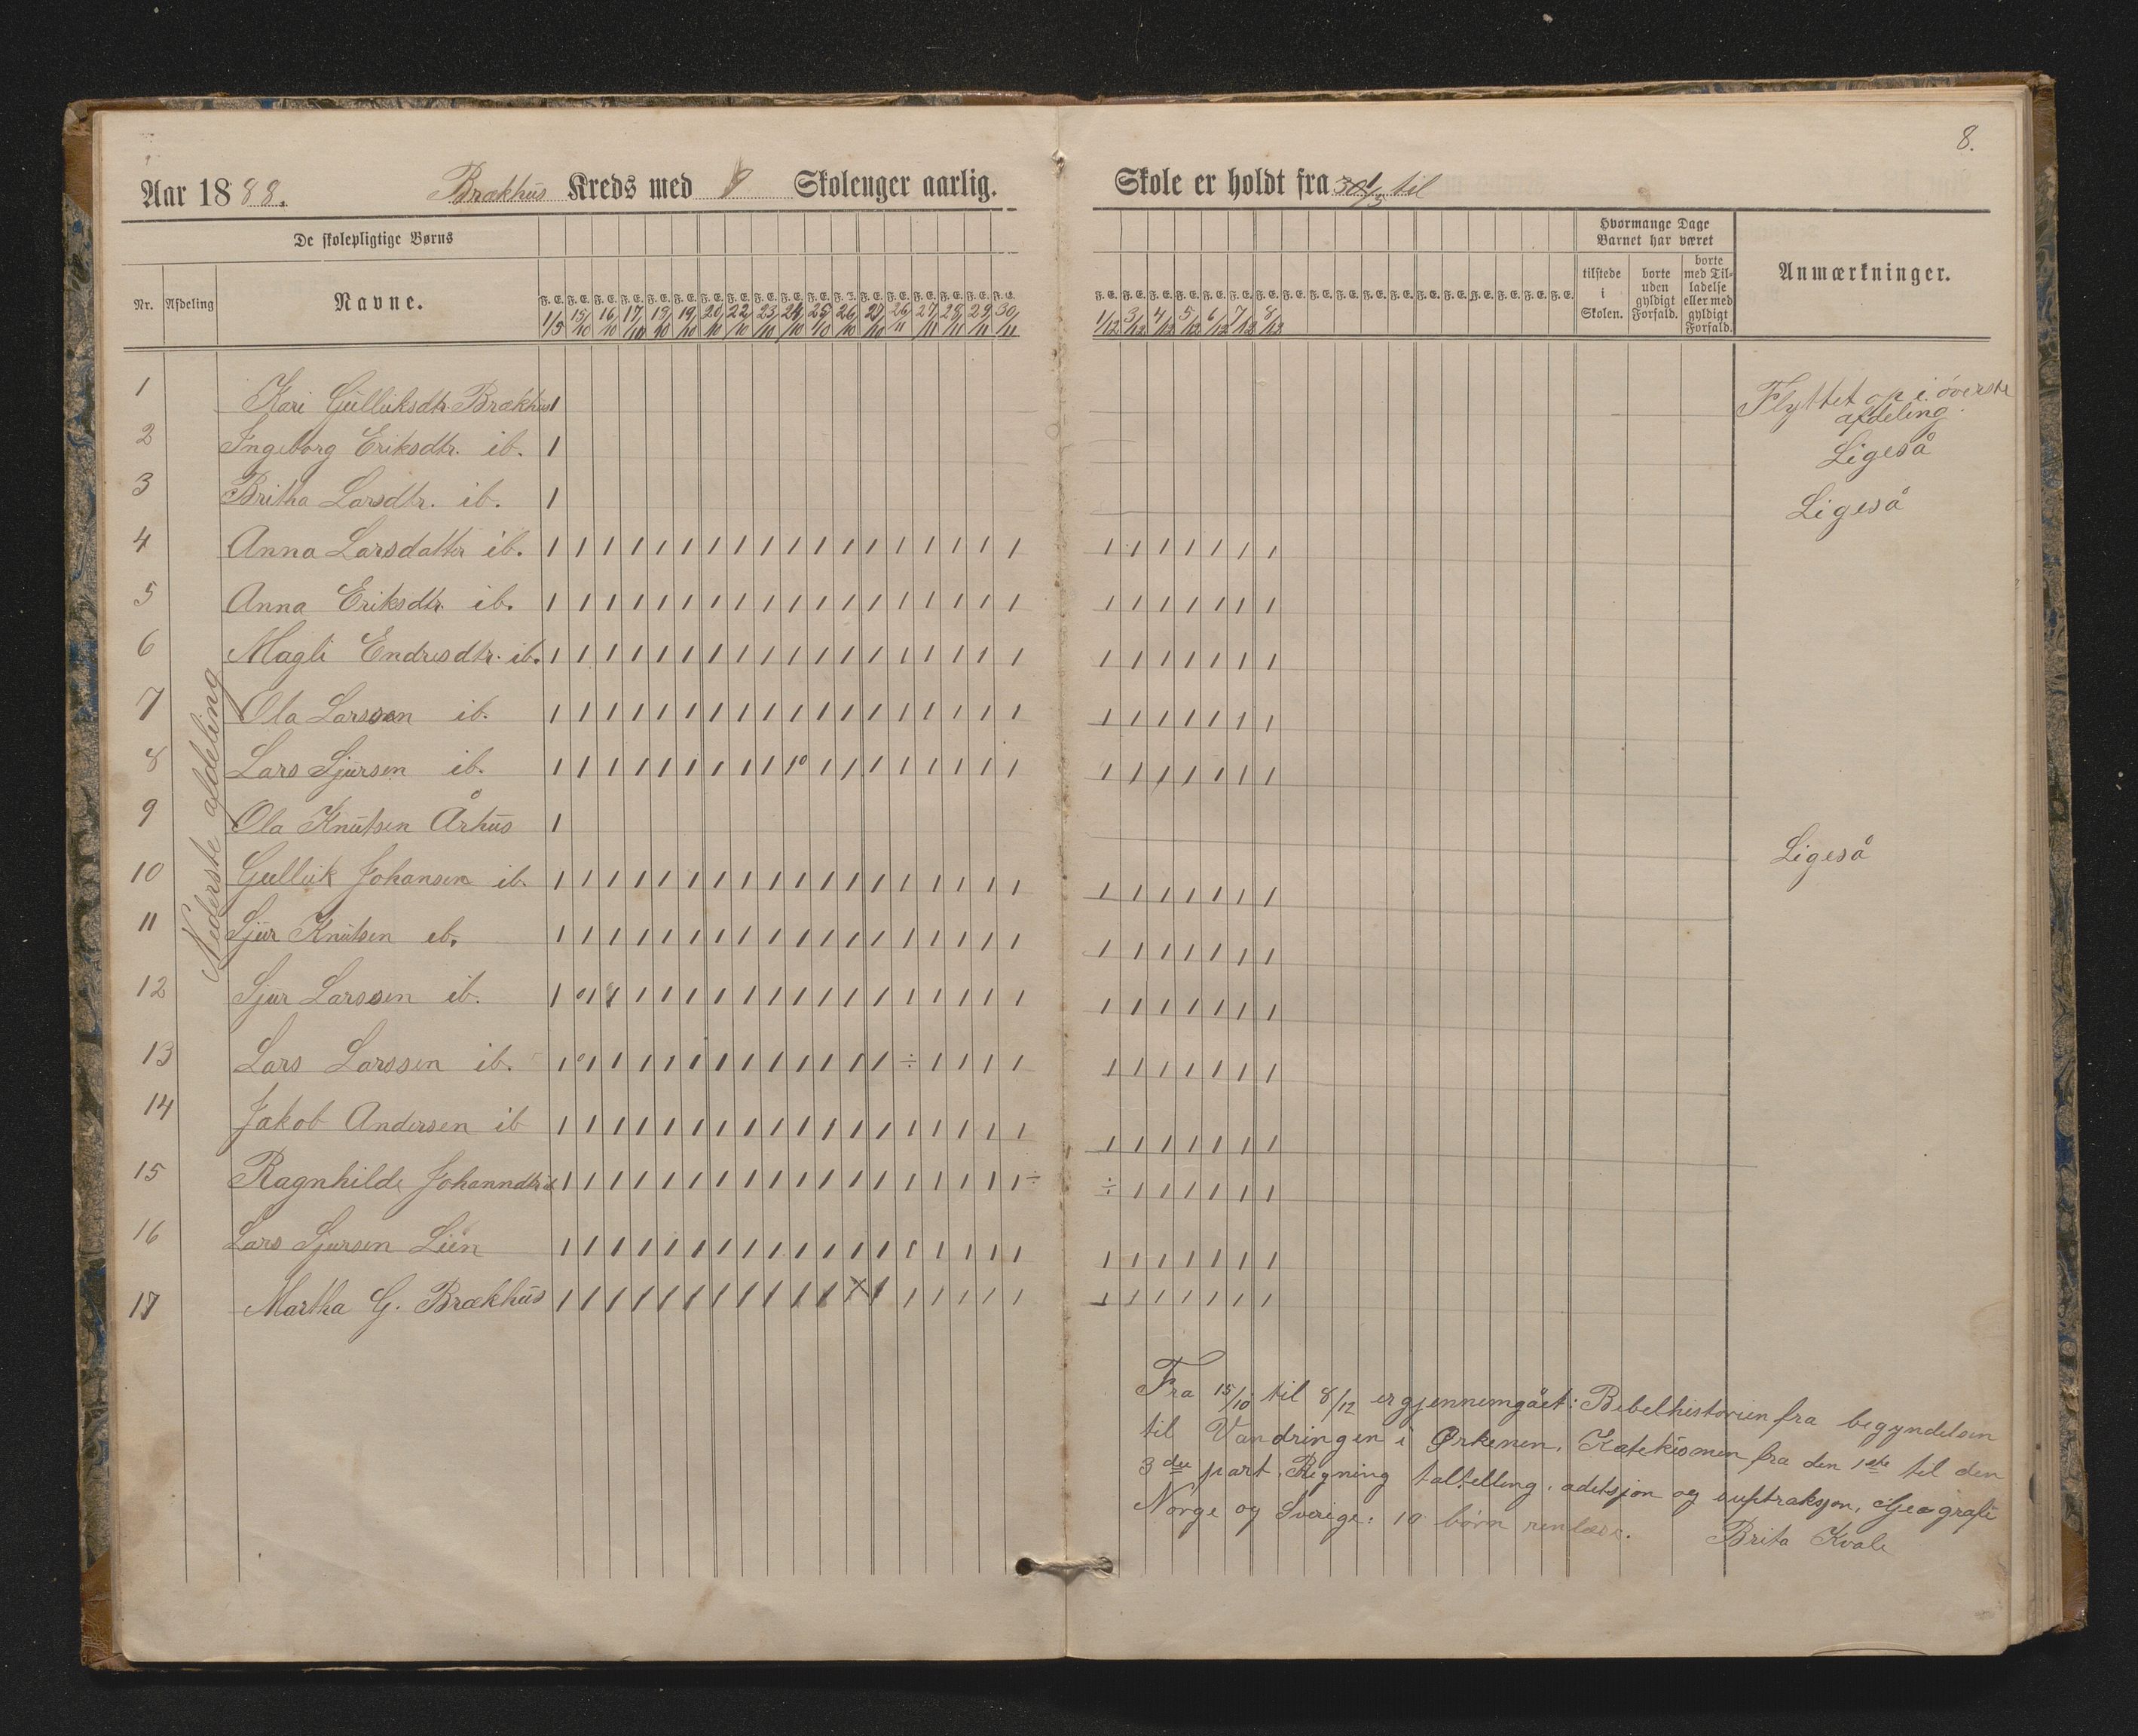 8.
Aar 1888. Brækhüs Kreds med 8 Skoleuger aarlig. Skole er holdt fra til
De skolepligtige Børns
Hvormange Dage Barnet har været
Nr. Afdeling Navne.
F. E. F. E. F. E. F. E. F. E. F. E. F. E. F. E. F. E. F. E. F. E. F. E. F. E. F. E. F. E. F. E. F. E. F. E.
1/5 15/10 16/10 17/10 18/10 19/10 20/10 22/10 23/10 24/10 25/10 26/10 27/10 26/11 27/11 28/11 29/11 30/11
F. E. F. E. F. E. F. E. F. E. F. E. F. E. F. E. F. E. F. E. F. E. F. E. F. E. F. E. F. E. F. E. F. E. F. E.
1/12 3/12 4/12 5/12 6/12 7/12 8/12
tilstede i Skolen.
borte uden gyldigt Forfald.
borte med Tilladelse eller med gyldigt Forfald.
Anmærkninger.
Nederste afdeling
1 Kari Gülliksdtr. Brækhus 1 Flyttet op i överste afdeling.
2 Ingeborg Eriksdtr. ib. 1 Ligeså
3 Britha Larsdtr. ib. 1 Ligeså
4 Anna Larsdatter ib. 1 1 1 1 1 1 1 1 1 1 1 1 1 1 1 1 1 1 1 1 1 1 1 1 1
5 Anna Eriksdtr. ib. 1 1 1 1 1 1 1 1 1 1 1 1 1 1 1 1 1 1 1 1 1 1 1 1 1
6 Magli Endresdtr. ib. 1 1 1 1 1 1 1 1 1 1 1 1 1 1 1 1 1 1 1 1 1 1 1 1 1
7 Ola Larssen ib. 1 1 1 1 1 1 1 1 1 1 1 1 1 1 1 1 1 1 1 1 1 1 1 1 1
8 Lars Sjürsen ib. 1 1 1 1 1 1 1 1 1 10 1 1 1 1 1 1 1 1 1 1 1 1 1 1 1
9 Ola Knütsen Århüs 1 Ligeså
10 Gullük Johansen ib. 1 1 1 1 1 1 1 1 1 1 1 1 1 1 1 1 1 1 1 1 1 1 1 1 1
11 Sjür Knütsen ib. 1 1 1 1 1 1 1 1 1 1 1 1 1 1 1 1 1 1 1 1 1 1 1 1 1
12 Sjür Larssen ib. 1 01 1 1 1 1 1 1 1 1 1 1 1 1 1 1 1 1 1 1 1 1 1 1 1
13 Lars Larssen ib. 1 01 1 1 1 1 1 1 1 1 1 1 1 ÷ 1 1 1 1 1 1 1 1 1 1 1
14 Jakob Andersen ib 1 1 1 1 1 1 1 1 1 1 1 1 1 1 1 1 1 1 1 1 1 1 1 1 1
15 Ragnhilde Johanndtr ib 1 1 1 1 1 1 1 1 1 1 1 1 1 1 1 1 1 1 ÷ ÷ 1 1 1 1 1 1
16 Lars Sjursen Lien 1 1 1 1 1 1 1 1 1 1 1 1 1 1 1 1 1 1 1 1 1 1 1 1 1
17 Martha G. Brækhüs 1 1 1 1 1 1 1 1 1 1 1 X 1 1 1 1 1 1 1 1 1 1 1 1 1
Fra 15/10 til 8/12 er gjennemgået: Bebelhistorien fra begyndelsen
til Vandringen i Ørkenen. Katekismen fra den 1ste til den
3die part. Regning taltelling, aditsjon og suptraksjon, Geografi
Norge og Sverige: 10 børn renlæse.
Brita Kvale